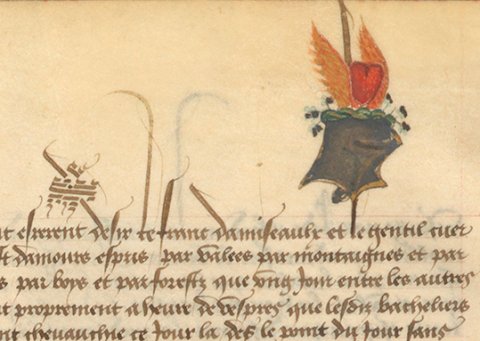 errerent desir ce franc damiseaulx et le gentil cuer
damours espris par valees par montaignes et par
par boys et par forestz que vng jour entre les autres
proprement a heure de vespres que lesdiz bacheliers
cheuauchie ce jour la des le point du jour sans